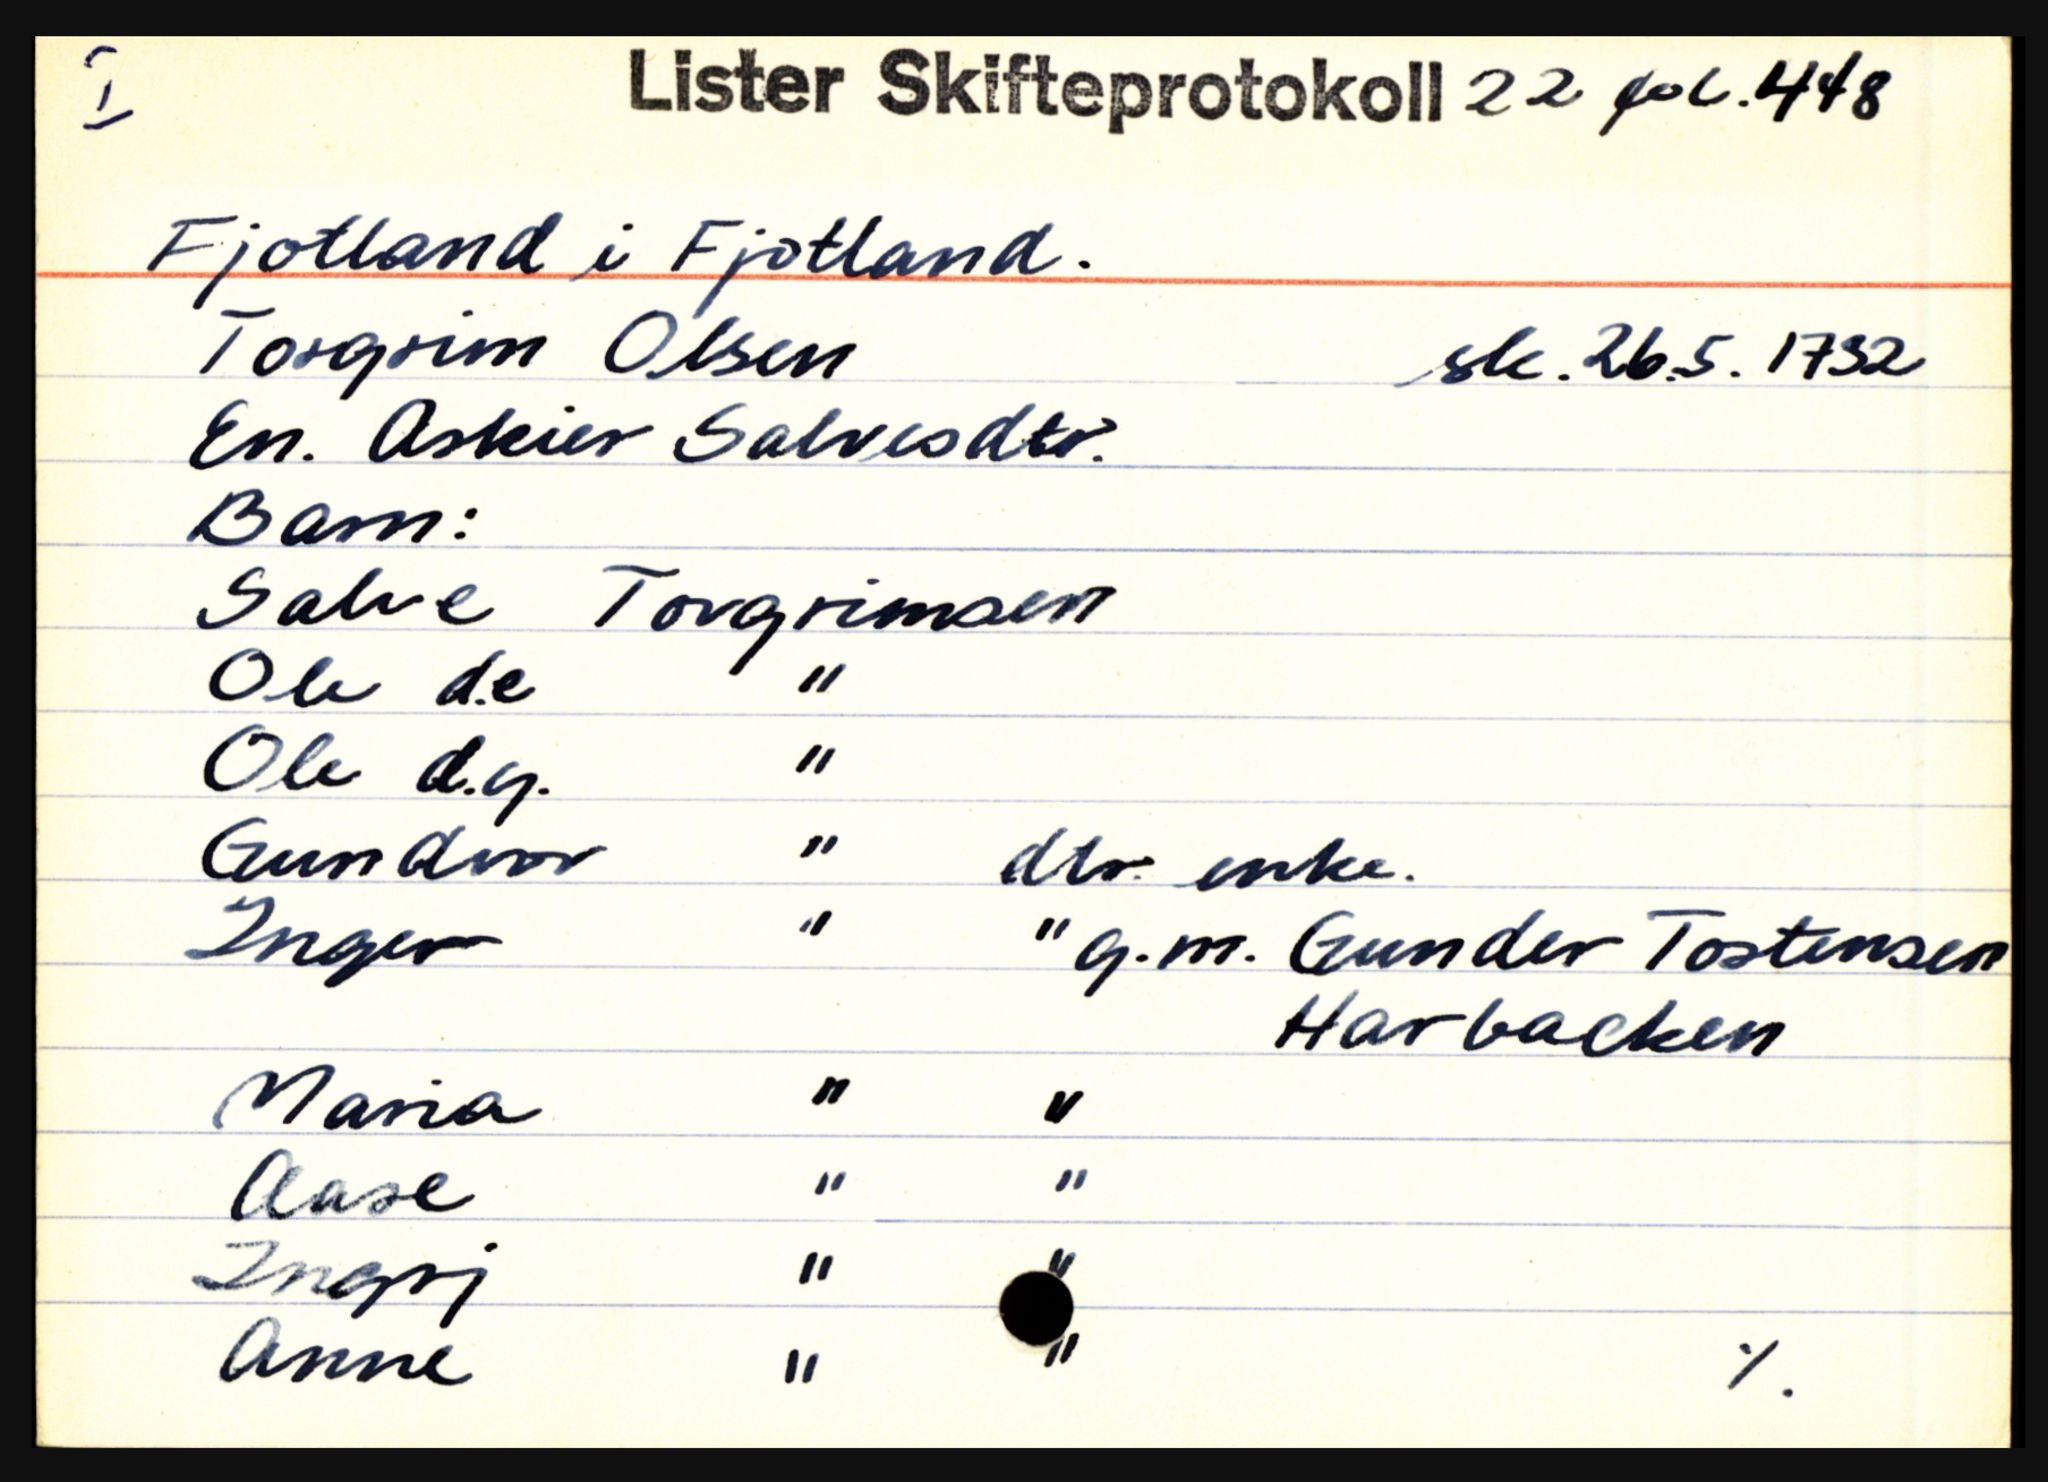 I
Lister Skifteprotokoll 22 fol. 448
Fjotland i Fjotland.
Torgrim Olsen sk. 26.5. 1732
En. Askier Salvesdtr.
Barn:
Salve Torgrimsen
Ole d.e "
Ole d.y. "
Gundvor " dtr. enke.
Inger " " g.m. Gunder Tostensen
Harbacken
Maria " "
Aase " "
Ingrj " "
Anne " "
./.